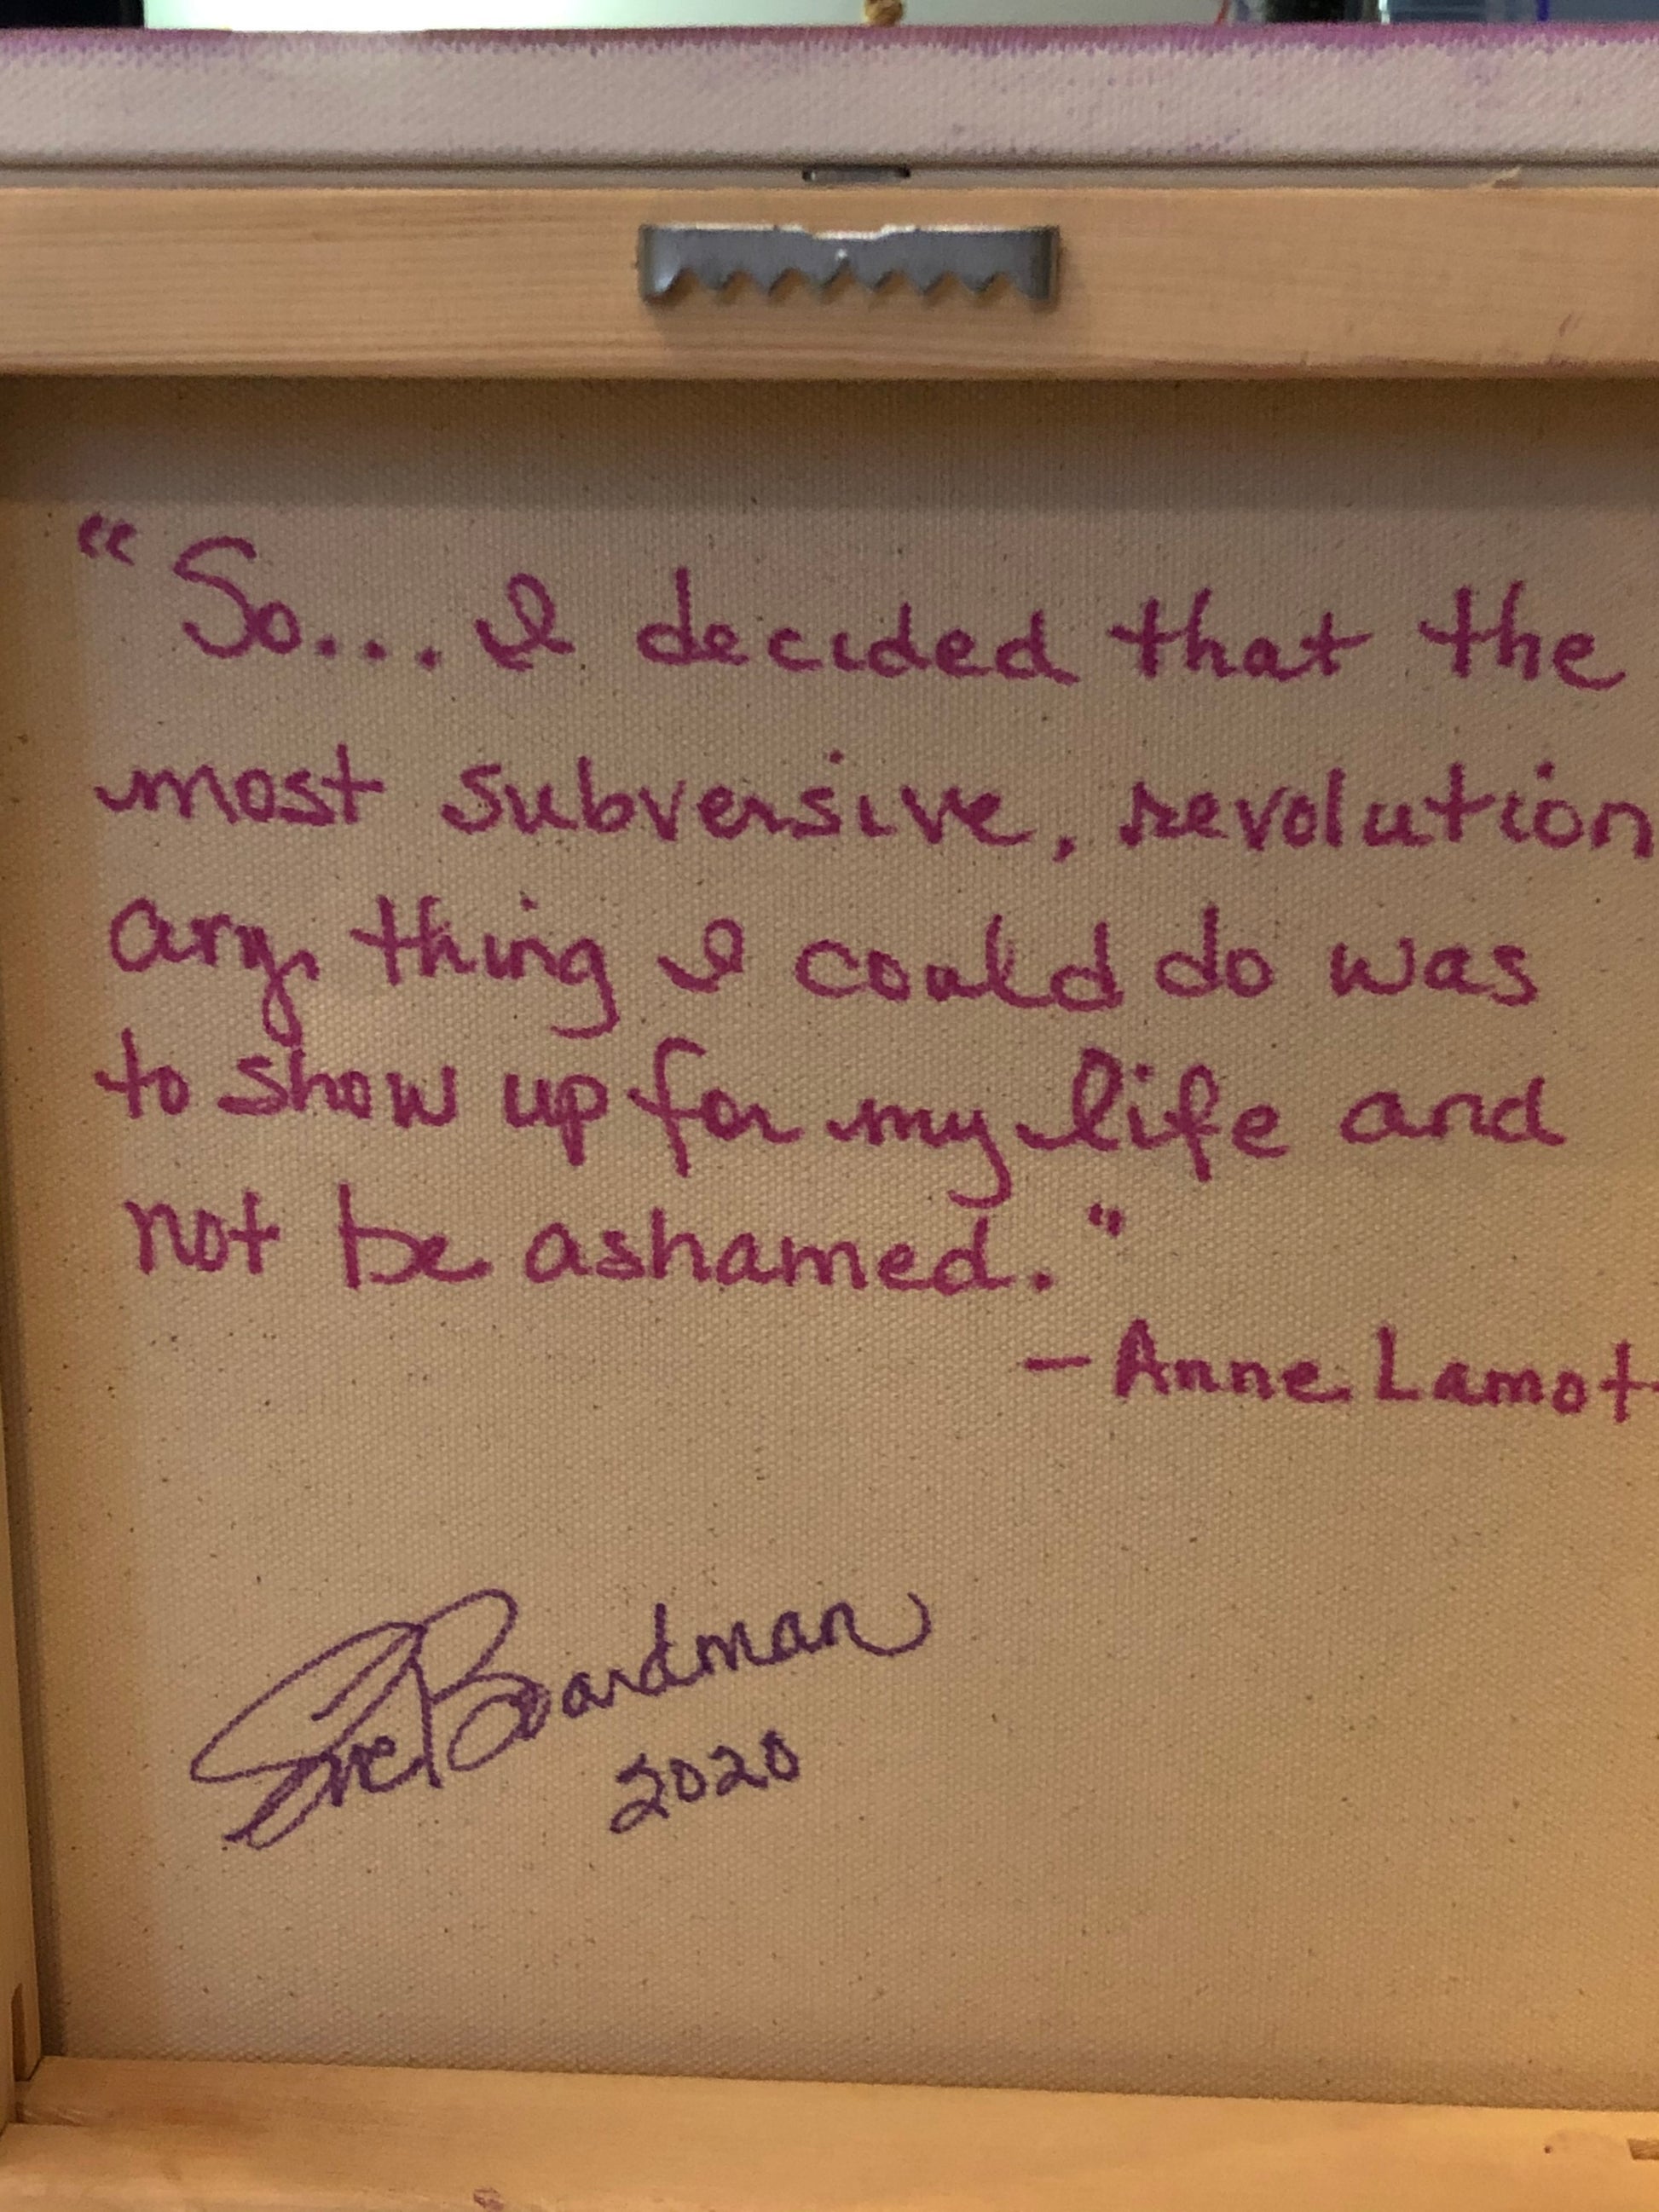 “So... I decided that the
most subversive, revolution
ary thing I could do was
to show up for my life and
not be ashamed."
- Anne Lamot
Boardman
2020